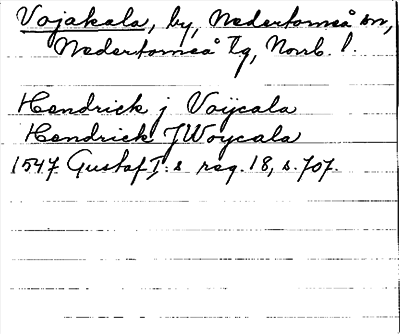 Vojakala, by, Nedertorneå sn,
Nedertorneå Tg, Norrb. l.
Hendrick j Voijcala
Hendrick J Woycala
1547 Gustaf I:s reg. 18, s. 707.